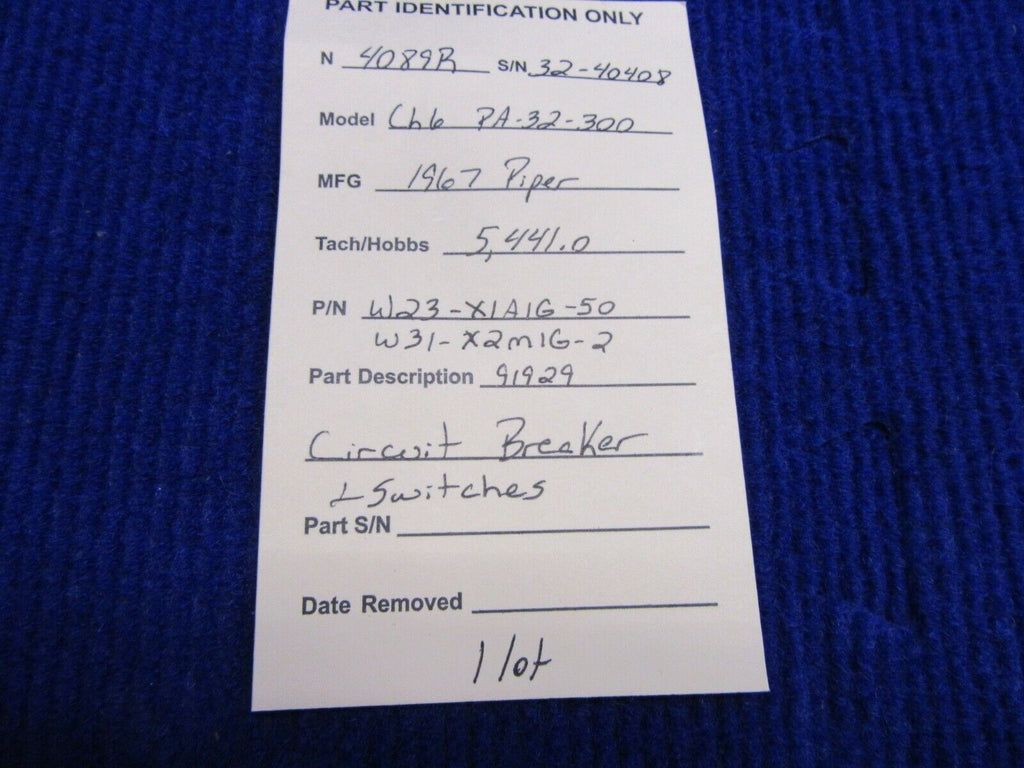 PART IDENTIFICATION ONLY
N 4089R S/N 32-40408
Model Ch6 PA-32-300
MFG 1967 Piper
Tach/Hobbs 5,441.0
P/N W23-X1A1G-50
W31-X2M1G-2
Part Description 91929
Circuit Breaker
+ Switches
Part S/N
Date Removed
1 lot